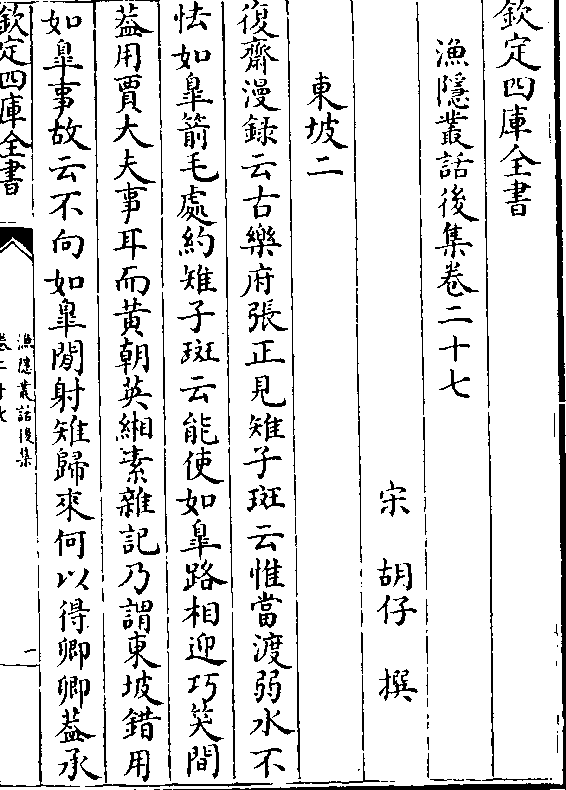 欽定四庫全書
漁隱叢話後集卷二十七
宋 胡仔 撰
東坡二
復齋漫録云古樂府張正見雉子斑云惟當渡弱水不
怯如臯箭毛處約雉子斑云能使如臯路相迎巧笑間
葢用賈大夫事耳而黄朝英緗素雜記乃謂東坡錯用
如臯事故云不向如臯閒射雉歸來何以得卿卿葢承
欽定四庫全書
漁隱叢話後集
卷二十七
一